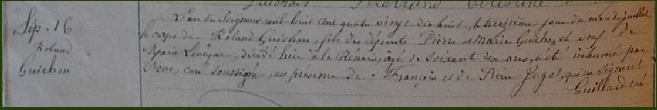 Sép. 16
Roland
Guichon
L'an du Seigneur mil huit cent quatre vingt dix huit, le treizième jour du mois de juillet
le corps de Roland Guichon, fils des défunts Pierre et Marie Guichon et veuf de
Marie Levêque, décédé hier à la, âgé de soixant dix ans, a été inhumé par
Nous, curé soussigné, en présence de François et de Pierre Jégot, qui ne signent
Guillard curé